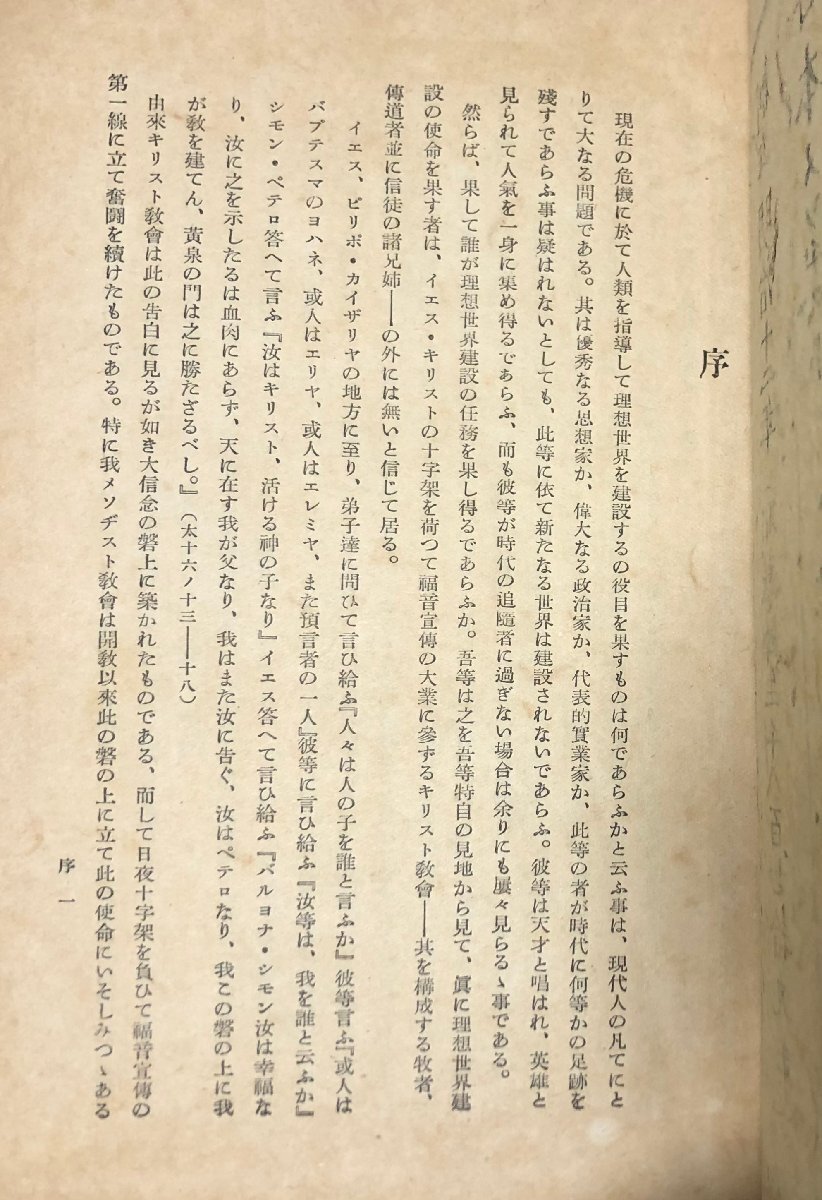 序
現在の危機に於て人類を指導して理想世界を建設するの役目を果すものは何であらふかと云ふ事は、現代人の凡てにと
りて大なる問題である。其は優秀なる思想家か、偉大なる政治家か、代表的實業家か、此等の者が時代に何等かの足跡を
殘すであらふ事は疑はれないとしても、此等に依て新たなる世界は建設されないであらふ。彼等は天才と唱はれ、英雄と
見られて人氣を一身に集め得るであらふ、而も彼等が時代の追隨者に過ぎない場合は余りにも屢々見らるゝ事である。
然らば、果して誰が理想世界建設の任務を果し得るであらふか。吾等は之を吾等特自の見地から見て、眞に理想世界建
設の使命を果す者は、イエス・キリストの十字架を荷つて福音宣傳の大業に參ずるキリスト敎會――其を構成する牧者、
傳道者並に信徒の諸兄姉――の外には無いと信じて居る。
イエス、ピリポ・カイザリヤの地方に至り、弟子達に問ひて言ひ給ふ『人々は人の子を誰と言ふか』彼等言ふ『或人は
バプテスマのヨハネ、或人はエリヤ、或人はエレミヤ、また預言者の一人』彼等に言ひ給ふ『汝等は、我を誰と云ふか』
シモン・ペテロ答へて言ふ『汝はキリスト、活ける神の子なり』イエス答へて言ひ給ふ『バルヨナ・シモン汝は幸福な
り、汝に之を示したるは血肉にあらず、天に在す我が父なり、我はまた汝に告ぐ、汝はペテロなり、我この磐の上に我
が敎を建てん、黄泉の門は之に勝たざるべし。』（太十六ノ十三――十八）
由來キリスト敎會は此の告白に見るが如き大信念の磐上に築かれたものである、而して日夜十字架を負ひて福音宣傳の
第一線に立て奮鬪を續けたものである。特に我メソヂスト敎會は開敎以來此の磐の上に立て此の使命にいそしみつゝある
序 一